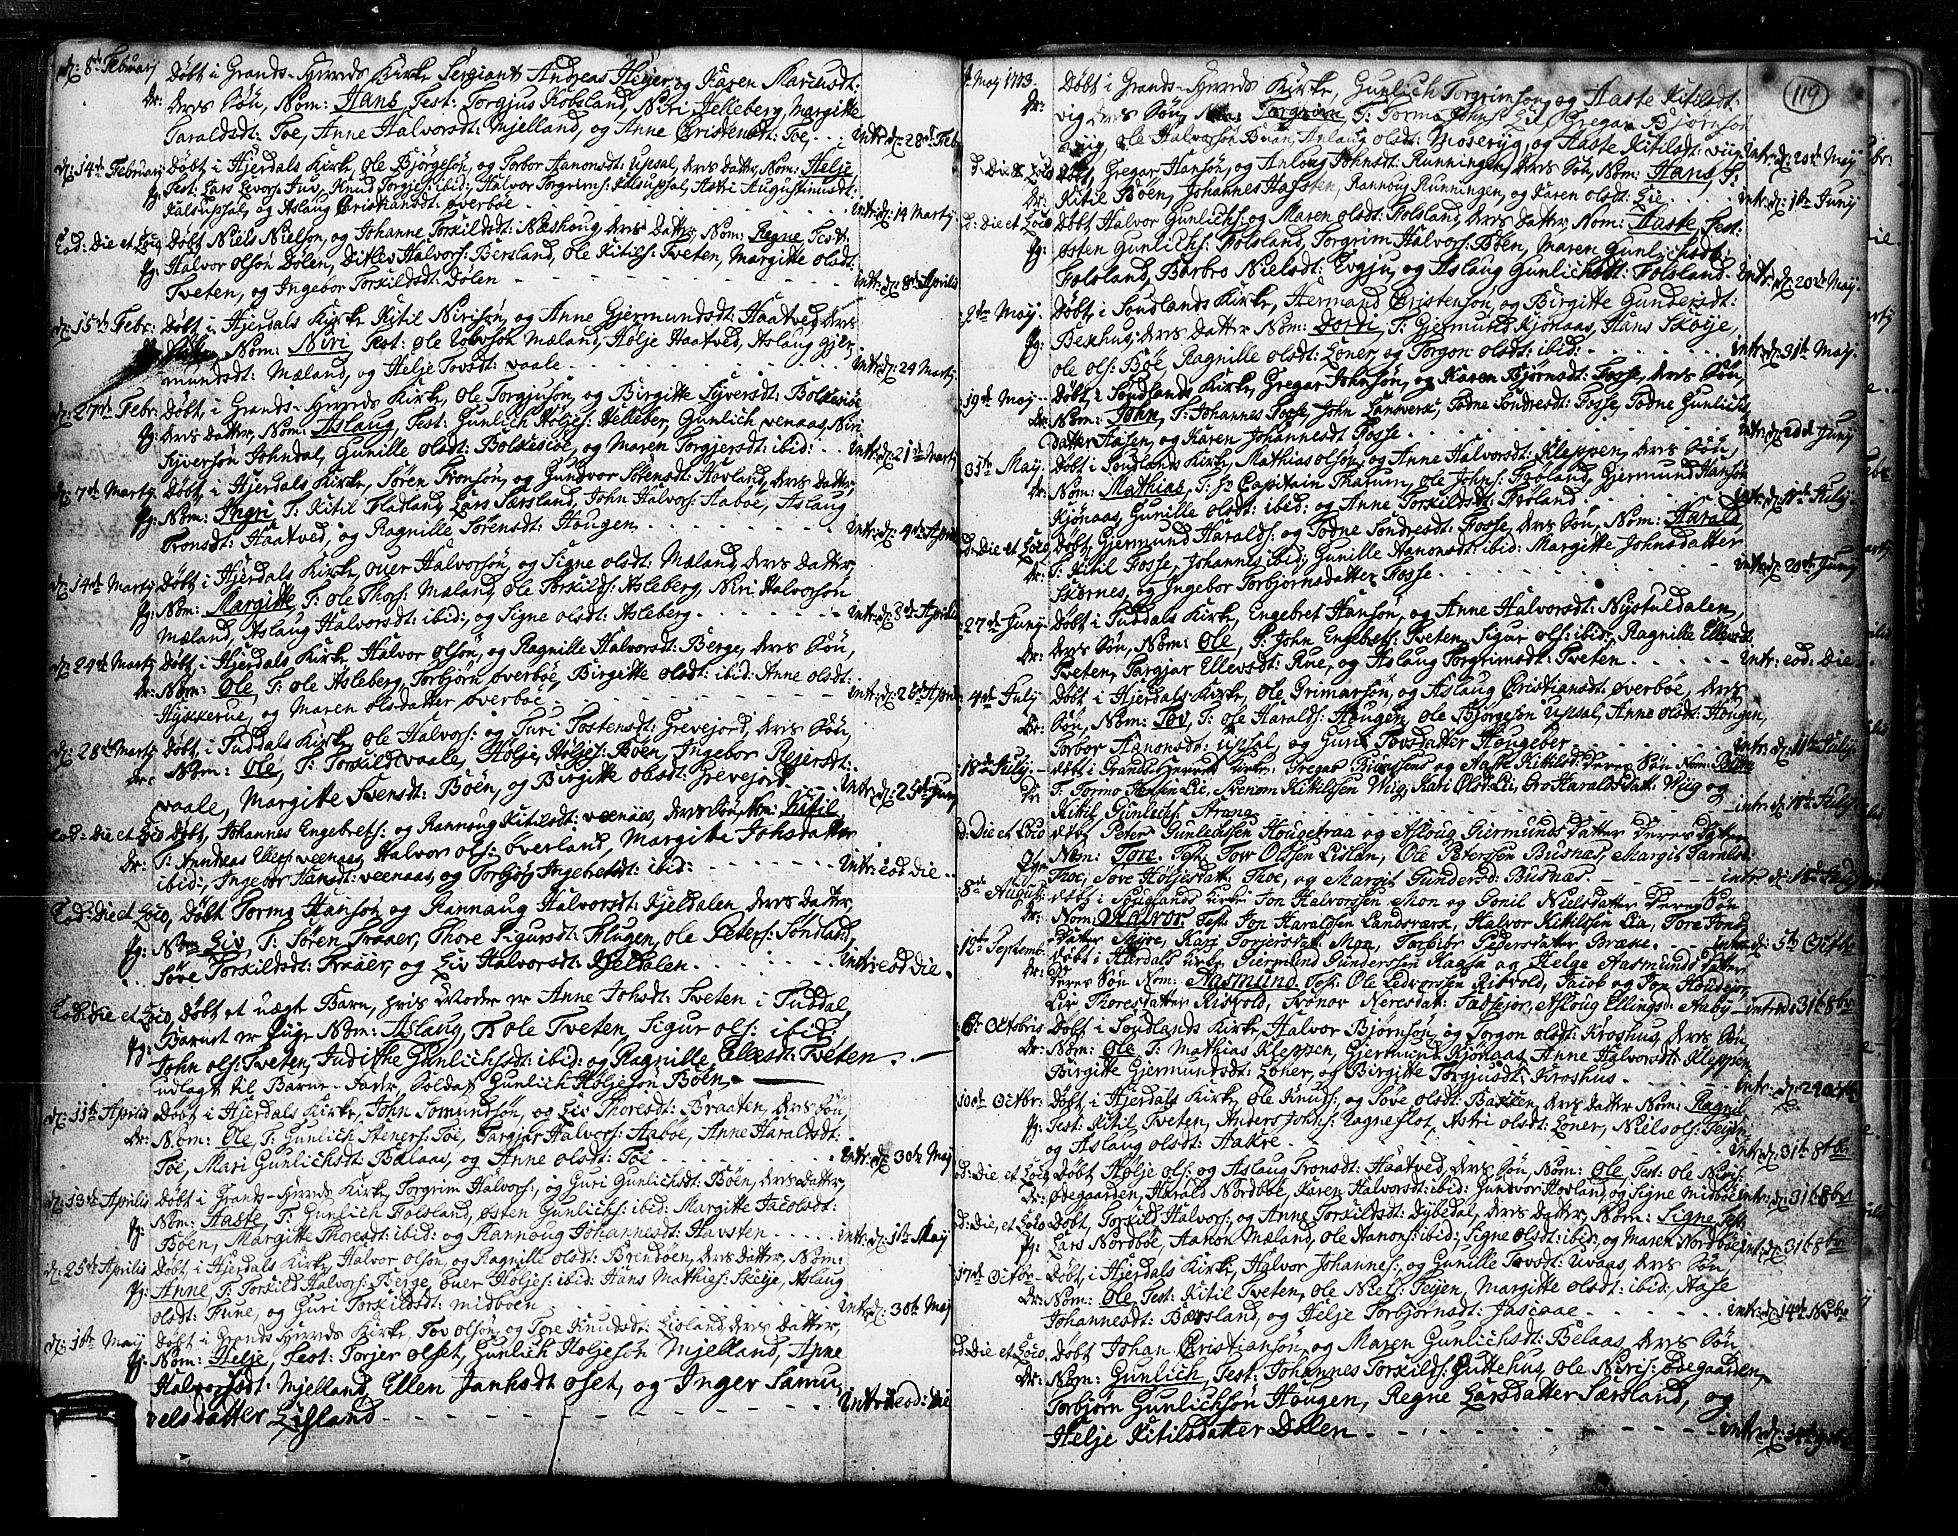 d: 8de Februarj Døbt i Grands-Herreds Kirke Sergiant Andreas Heyer, og Karen Marcusdt:
dr: deres Søn, Nom: Hans, Test: Torgius Kobsland, Niri Helleberg, Margitte
Taraldsdt: Toe, Anne Halvorsdt: Mjelland, og Anne Christensdt: Toe. Intr: d: 28de Feb
d: 14de Februarj Døbt i Hjerdals Kirke, Ole Bjørgesøn, og Torbor Aanonsdt: Upsal, deres Datter, Nom: Helje,
pg: Test: Lars Levors: Fuv, Knud Torgjes: ibid: Halvor Torgrims: Kalsupsal, Astri Augustinusdt:
Kalsupsal, og Aslaug Christiansdt: Øverbøe Intr: d: 14 Martij.
Eod: die et Loco Døbt Niels Nielsøn, og Johanne Torkildsdt: Næshoug, deres Datter, Nom: Regne, Test:
pg: Halvor Olsøn Dølen, Ditlev Halvors: Bersland, Ole Kitils: Tveten, Margitte Olsdt:
Tveten, og Ingebor Torkildsdt: Dølen Intr: d: 8de Aprilis
d: 15de Febr: Døbt i Hjerdals Kirke Kitil Nirisøn, og Anne Gjermundsdt: Haatved, deres
Nom: Niri Test: Ole Mæland, Hølje Haatved, Aslaug Gjer
mundsdt: Mæland, og Helje Tovsdt: Vaale Intr: d: 24 Martij
d: 27de Febr: Døbt, i Grands-Herreds Kirke, Ole Torgjusøn, og Birgitte Syversdt: Bolkesiøe
pg: deres Datter, Nom: Aslaug, Test: Gunlich Høljes: Helleber, Gunlich Veenaas, Niri
Syversøn Johndal, Gunille Olsdt: Bolkesiøe, og Maren Torgjersdt: ibid: Intr: d: 21de Martij
d: 7de Martij Døbt, i Hjerdals Kirke, Søren Tronsøn, og Gundvor Sørensdt: Hovland, deres Datter,
pg: Nom: Ingri T: Kitil Fladland, Lars Særsland, John Halvors: Aabøe, Aslaug
Tronsdt: Haatved, og Ragnille Sørensdt: Hougen Intr: d: 4de Aprilis
d: 14de Martij Døbt i Hjerdals Kirke, Over Halvorsøn, og Signe Olsdt: Mæland, deres Datter,
pg: Nom: Margitte, T: Ole Thors: Mæland, Ole Torkilds: Asleberg, Niri Halvorsøn
Mæland, Aslaug Halvorsdt: ibid:, og Signe Olsdt: Asleberg Intr: d: 3de Aprilis
d: 24de Martij Døbt i Hjerdals Kirke Halvor Olsøn, og Ragnille Halvorsdt: Berge, deres Søn,
dr: Nom: Ole, T: Ole Asleberg, Torbjørn Øverbøe, Birgitte Olsdt: ibid: Anne Olsdt:
Hykkerue, og Maren Olsdatter Øverbøe Intr: d: 25de Aprilis
d: 28de Martij Døbt i Tuddals Kirke, Ole Halvors: og Turi Tostensdt: Grevejord, deres Søn,
dr: Nom: Ole, T: Torkild Vaale, Hølje Høljes: Bøen, Ingebor Rejersdt:
Vaale, Margitte Svensdt: Bøen, og Birgitte Olsdt: Grevejord. Intr: d: 25de Junij
Eod: die et Loco Døbt, Johannes Engebrets: og Rannoug Kitilsdt: Veenaas, deres Søn, Nom: Kitil
dr: T: Andreas Ellefs: Veenaas, Halvor Ols: Øverland, Margitte Johsdatter
ibid:, Ingebor Hansdt: Veenaas, og Torbjør Ingebretsdt: ibid: Intr: eod die
Eod: die et Loco, Døbt Tormo Hansøn, og Rannaug Halvorsdt: Kjeldalen, deres Datter,
pg: Nom: Liv, T: Søren Fraaer, Thore Sigursdt: Flugen, Ole Peters: Søndland,
Søre Torkildsdt: Fraaer, og Liv Halvorsdt: Kjeldalen Intr: eod die
Eod: die et Loco, Døbt et uægt Barn, hvis Moder er Anne Johsdt: Tveten i Tuddal,
pg: Barnet er Pige Nom: Aslaug, T: Ole Tveten, Sigur Ols: ibid:
John Ols: Tveten, Judithe Gunlichsdt: ibid: og Ragnille Ellevsdt: Tveten
udlagt til Barne-Fader, Soldat Gunlich Høljesøn Bøen,
d: 11te Aprilis Døbt i Hjerdals Kirke, John Somundsøn, og Liv Thoresdt: Braaten, deres Søn,
dr: Nom: Ole T: Gunlich Steners: Toe, Targjer Halvors: Aabøe, Anne Haraldsdt:
Toe, Mari Gunlichsdt: Bælaas, og Anne Olsdt: Toe Intr: d: 30te Maj
d: 13de Aprilis Døbt i Grands-Herreds Kirke, Torgrim Halvors:, og Guri Gunlichsdt: Bøen, deres Datter,
pg: Nom: Aaste, T: Gunlich Folsland, Østen Gunlichs: ibid: Margitte Jacobsdt:
Bøen, Margitte Thoresdt: ibid: og Rannoug Johannesdt: Havsten Intr: d: 1te Maij
d: 25de Aprilis Døbt, i Hjerdals Kirke, Halvor Olsøn, og Ragnille Olsdt: Brendøen, deres Datter, Nom:
pg: Anne, T: Torkild Halvors: Berge, Over Høljes: ibid: Hans Mathies: Skeije, Aslaug
Olsdt: Fune, og Guri Torkildsdt: Midbøen Intr: d: 30te Maj
d: 1te Maij Døbt i Grands-Herreds Kirke, Tov Olsøn, og Tore Knudsdt: Lisland, deres Datter,
pg: Nom: Helje, Test: Torjer Olset, Gunlich Høljesøn Mjelland, Anne
Halvorsdt: Mjelland, Ellen Janhsdt Oset, og Inger Samu
velsdatter Lisland Intr: eod: die
119
Maj 1743. Døbt i Grands-Herreds Kirke, Gunlich Torgrimsøn, og Aaste Kitilsdt:
dr: vig deres Søn, Nom: Torgrim, T: Tormo Johns: Lie, Gregar Bjørnsøn
Wiig, Ole Halvorsøn Bøen, Aslaug Olsdt: Moserjg, og Aaste Kitilsdt: Viig Intr: d: 20de Maij
d: die & Loco Døbt, Gregar Hansøn, og Anloug Johnsdt: Runningen, deres Søn, Nom: Hans, T:
dr: Kitil Bøen, Johannes Hafsten, Rannoug Runningen, og Karen Olsdt: Lie Intr: d: 1te Junij
d: die et Loco Døbt Halvor Gunlichs: og Maren Olsdt: Folsland, deres Datter, Nom: Aaste, Test:
pg: Østen Gunlichs: Folsland, Torgrim Halvors: Bøen, Maren Gunlichsdt:
Folsland, Barbro Nielsdt: Evgju, og Aslaug Gunlichsdt: Folsland Intr: d: 20de Maij.
2den Maij. Døbt, i Søndlands Kirke, Hermand Christensøn, og Birgitte Gundersdt:
pg: Bexhus, deres Datter Nom: Dordi, T: Gjermund Kjønaas, Hans Skøije,
Ole Ols: Bøe, Ragnille Olsdt: Loner, og Torgon Olsdt: ibid: Intr: d: 31te Maij.
19de Maij Døbt, i Søndlands Kirke, Gregar Johnsøn, og Karen Bjørnsdt: Fosse, deres Søn,
dr: Nom: John, T: Johannes Fosse, John Lansverk, Todne Sondresdt: Fosse, Todne Gunlichs
datter Aasen, og Karen Johannesdt Fosse Intr: d: 20de Junij
31te Maij. Døbt i Søndlands Kirke, Mathias Olsøn, og Anne Halvorsdt: Kleppen, deres Søn,
dr: Nom: Mathias, T: Hr Capitain Tharum, Ole Johns: Frøland, Gjermund Hansøn
Kjønaas, Gunille Olsdt: ibid: og Anne Torkildsdt: Frøland Intr: d: 11te Julij.
d: die et Loco Døbt, Gjermund Haralds: og Todne Sondresdt: Fosse, deres Søn, Nom: Harald,
dr: T: Kitil Fosse, Johannes ibid: Gunille Aanonsdt: ibid: Margitte Johnsdatter
Skornes, og Ingebor Torbjørnsdatter Fosse Intr: d: 20de Junij
27de Junij Døbt i Tuddals Kirke, Engebret Hansøn, og Anne Halvorsdt: Nystuldalen
dr: deres Søn, Nom: Ole, T: John Engebrets: Tveten, Sigur Ols: ibid:, Ragnille Ellevsdt:
Tveten, Targjer Ellevsdt: Rue, og Aslaug Torgrimsdt: Tveten Intr: eod: die
4de Julij Døbt, i Hjerdals Kirke, Ole Grimarsøn, og Aslaug Christiansdt: Øverbøe, deres
dr: Søn, Nom: Tov, T: Ole Haralds: Hougen, Ole Bjørgesøn Upsal, Anne Olsdt: Hougen,
Torbor Aanonsdt: Upsal, og Guri Tovsdatter Hougeber Intr: d: 11te Julij
18de Julij døbt i Grands Herreds Kirke: Gregar Biørnsens og Aaste Kittilsd: deres Søn Nom: Biørn
dr: T: Tormo Jensen Lie, Svenom Kittilssen Wiig, Kari Olsd: Lie, Gro Haraldsdatt: Wiig og
Kitil Gunlichs: Strang Intr: d: 18de Julij
od: Die et Loco døbt Peter Gunlechsen Hougetraa og Asloug Giermunds Datter deres Datter
Nom: Tore. Test: Tow Olssen Lislan, Ole Petersen Busnæs, Margit Taralsd:
Thoe, Tore Holjesdat: Thoe, og Margit Gundersd: Busnæs Intr: d: 18de Julij
8de Augusti døbt i Søuglands Kirke Jon Halvorssen Moen og Gonil Nielsdatter deres Søn
dr: Nom: Halvor Test: Jon Haraldsen Landsværk, Halvor Kittilssen Lia, Tore Jons
datter Myre, Kari Torjersdat: Moen, Torbiør Pedersdatter Bræse Intr: d: 5te Octbr
12te Septemb: døbt i Hærdals Kirke Giermund Gunderssen Kaasa og Helge Aasmunds Datter
dr: deres Søn Nom: Aasmund Test: Ole Ledvorssen Risvold, Jacob og Jon Houvejor,
Liv Thoresdatter Risvold, Tronor Neresdat: Tadsejor, Asloug Ellingsd: Aaby intr: d: 31te 8br
6te Octobris Døbt i Sørdlands Kirke, Halvor Bjørnsøn, og Torgon Olsdt: Kroshus, deres Søn
dr: Nom: Ole T: Mathias Kleppen, Gjermund Kjönaas, Anne Halvorsdt: Kleppen,
Birgitte Gjermundsdt: Loner, og Birgitte Torgjusdt: Kroshus Intr: d: 29 octb
10de Octbr: Døbt, i Hjerdals Kirke, Ole Knuds: og Tove Olsdt: Bakken, deres Datter Nom: Ragni
pg: Test: Kitil Tveten, Anders Johns: Ragneflot, Astri Olsdt: Loner, Niels Ols: Teijen
og Aslaug Olsdt: Aakre Intr: d: 31te 8tbr
od: die et Loco Døbt Hølje Ols: og Aslaug Tronsdt: Haatved, deres Søn, Nom: Ole, Test: Ole Niris:
dr: Ødegaarden, Harald Nordbøe, Karen Halvorsdt: ibid: Gunvor Hovland, og Signe Midbøe Intr: d: 31te 8br
od: die, et Loco Døbt, Torkild Halvors: og Anne Torkildsdt: Dybedal, deres Datter, Nom: Signe, Test:
pg: Lars Nordbøe, Aanon Mæland, Ole Aanons: ibid: Signe Olsdt: ibid: og Maren Nordbøe Intr: d: 31te 8br
17de Octbr Døbt, i Hjerdals Kirke, Halvor Johannes: og Gunille Tovsdt: Uvaas, deres Søn,
dr: Nom: Ole, Test: Kitil Tveten, Ole Niels: Teijen, Margitte Olsdt: ibid: Aase
Johannesdt: Bærsland, og Helje Torbjørnsdt: Jasaaae Intr: d: 14de Nvbr
od: die et Loco. Døbt Johan Christiansøn, og Maren Gunlichsdt: Belaas, deres Søn
dr: Nom: Gunlich, Test: Johannes Torkilds: Guttehus, Ole Niris: Ødegaarden,
Torbjørn Gunlichsøn Hougen, Regne Larsdatter Særsland, og
Helje Kitilsdatter Dølen